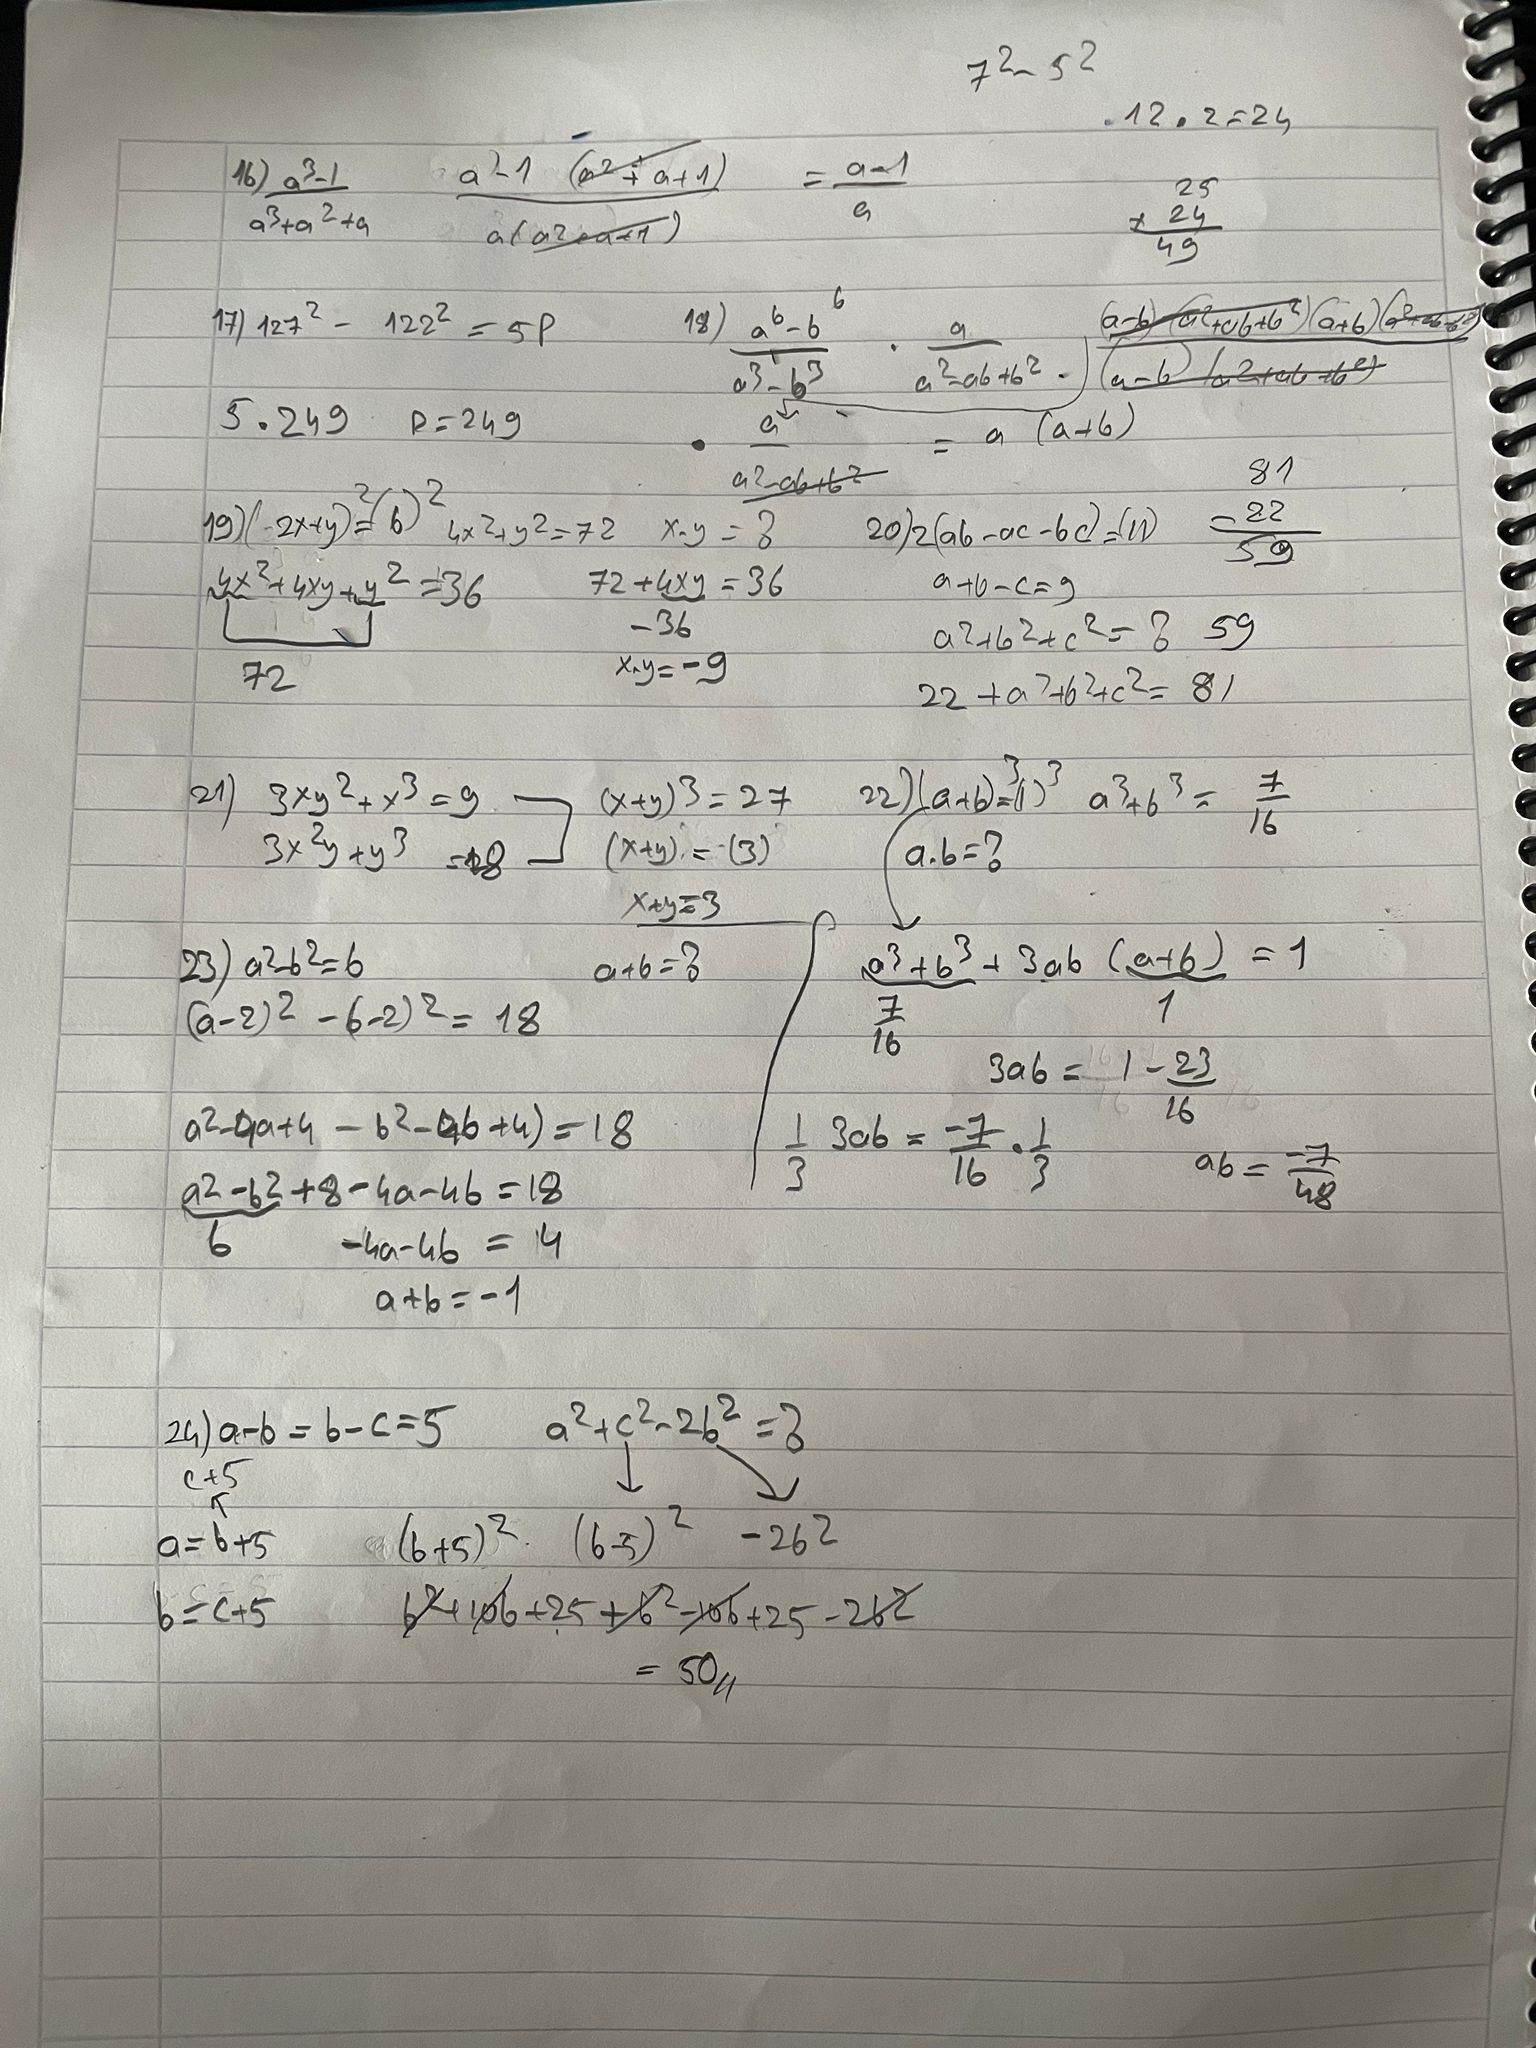 7² - 5²
. 12 . 2 = 24
16) a³-1 / a³+a²+a   a²-1 (a²+a+1) / a(a²+a+1) = a-1 / a
25
+ 24
49
17) 127² - 122² = 5P
5 . 249   P = 249
18) a⁶-b⁶ / a³-b³ . a / a²-ab+b² . (a-b)(a²+ab+b²)(a+b)(a²-ab+b²) / (a-b)(a²+ab+b²)
. a / a²-ab+b² = a (a+b)
19) (-2x+y)² = (6)²   4x²+y² = 72   x.y = ?
4x²+4xy+y² = 36   72 + 4xy = 36
72   -36
x.y = -9
20) 2(ab-ac-bc) = (11)
a+b-c = 9
a²+b²+c² = ? 59
22 + a²+b²+c² = 81
81
- 22
59
21) 3xy² + x³ = 9   (x+y)³ = 27
3x²y + y³ = 18   (x+y) = (3)
x+y = 3
22) (a+b)³ = (1)³   a³+b³ = 7/16
a.b = ?
a³+b³ + 3ab (a+b) = 1
7/16   1
3ab = 1 - 23/16
1/3 3ab = -7/16 . 1/3   ab = -7/48
23) a²-b² = 6   a+b = ?
(a-2)² - (b-2)² = 18
a²-4a+4 - b²-4b+4) = 18
a²-b²+8-4a-4b = 18
6   -4a-4b = 14
a+b = -1
24) a-b = b-c = 5   a²+c²-2b² = ?
c+5
a = b+5   (b+5)²   (b-5)²   -2b²
b = c+5   b²+10b+25+b²-10b+25-2b²
= 50//